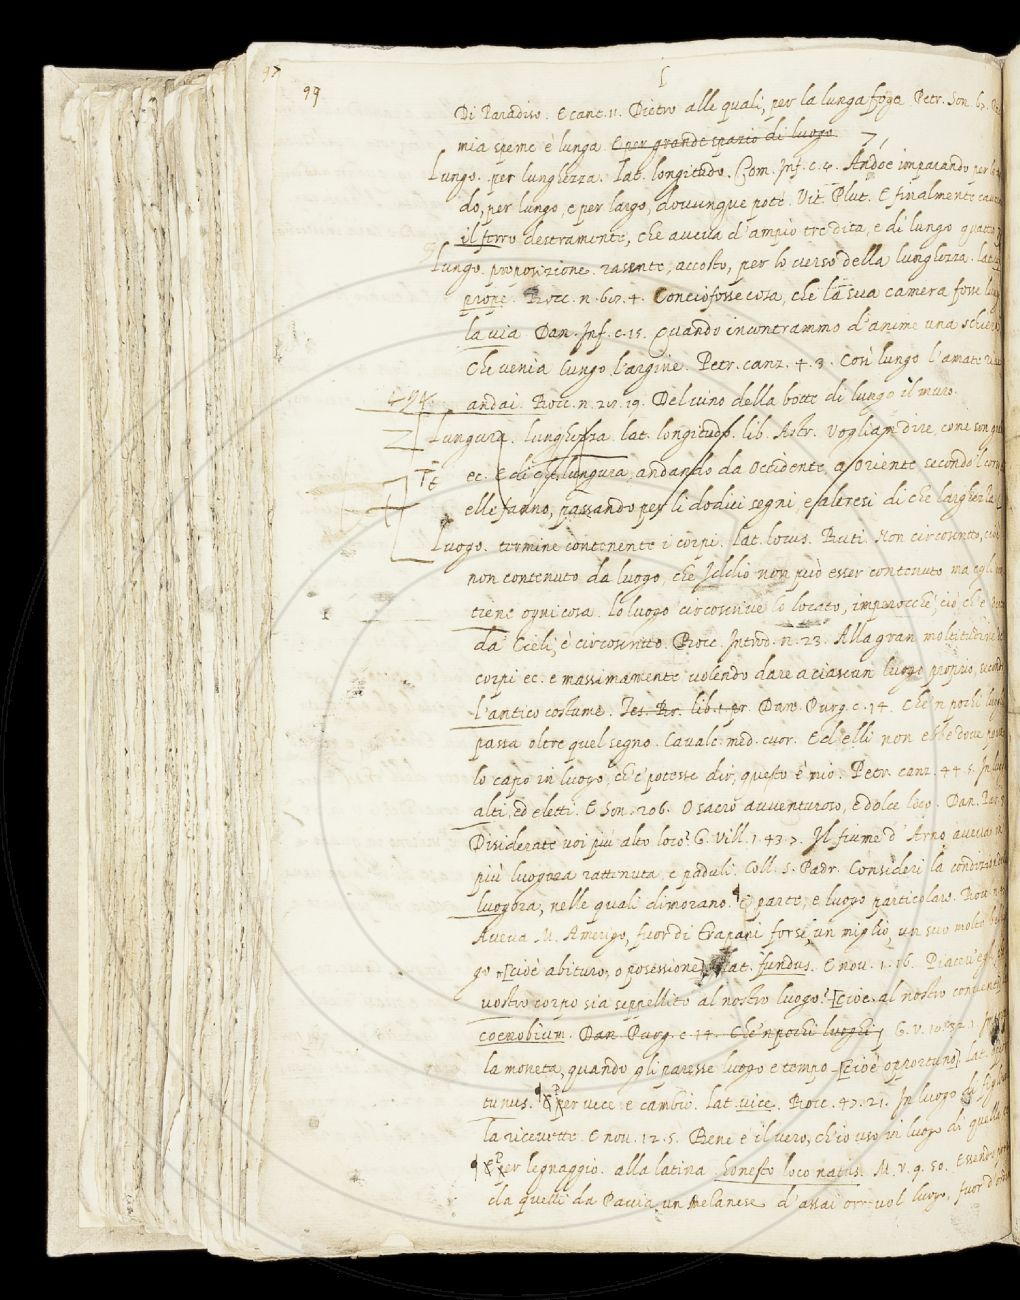 97
99
L
Di Paradiso. E cant. 11. Dietro alle quali, per la lunga foga. Petr. Son.
mia speme è lunga. E per grande spazio di luogo.
Lungo. per lunghezza. Lat. longitudo. Com. Inf. c. 4. Andoe imparando per
do, per lungo, e per largo, dovunque potè. Vit. Plut. E finalmente
il ferro destramente, che aveva d'ampio tre dita, e di lungo
Lungo. proposizione. rasente, accosto, per lo verso della lunghezza. lat.
prope. Bocc. n. 60. 4. Conciofosse cosa, che la sua camera fosse
la via Dan. Inf. c. 15. Quando incontrammo d'anime una schiera
Che venia lungo l'argine. Petr. canz. 4. 3. Così lungo l'amate
andai. Bocc. n. 20. 19. Del vino della botte di lungo il muro.
Lungura. lunghezza lat. longitudo. lib. Astr. Vogliam dire, come son
ec. E di che lungura, andando da Occidente, a Oriente secondo
Tt
elle fanno, passando per li dodici segni, e altresi di che
Luogo. termine contenente i corpi. lat. locus. Buti. Non circoscritto, cioè
non contenuto da luogo, che Iddio non può esser contenuto ma egli
tiene ogni cosa. Lo luogo circoscrive lo locato, imperocchè, ciò, ch'è
da' Cieli, è circoscritto. Bocc. Introd. n. 23. Alla gran moltitudine
corpi ec. e massimamente volendo dare a ciascun luogo proprio, secondo
l'antico costume. Tes. Br. lib. 1. pr. Dan. Purg. c. 14. Che 'n pochi
passa oltre quel segno. Cavalc. med. cuor. Ed elli non ebbe dove
lo capo in luogo, ch'e' potesse dir, questo è mio. Petr. canz. 44. 5.
alti, ed eletti. E Son. 206. O sacro avventuroso, e dolce loco. Dan. Par.
Disiderate voi più alto loco? G. Vill. 1. 43. 7. Il fiume d'Arno aveva
più luogora rattenuta, e paduli. Coll. S. Padr. Consideri la condizione
luogora, nelle quali dimorano. E parte, e luogo particolare.
Aveva M. Amerigo, fuor di Trapani forse, un miglio, un suo molto
go [cioè abituro, o possessione] Lat. fundus. E nov. 1. 16. Piacev'egli
vostro corpo sia seppellito al nostro luogo? [cioè al nostro
coenobium. Dan. Purg. c. 14. Che'n pochi luoghi G. V. 10.
la moneta, quando gli paresse luogo e tempo [cioè opportuno]. Lat.
tunus. per vece e cambio. Lat. vice. Bocc. 47. 21. In luogo di
la ricevette. E nov. 12. 5. Bene è il vero, ch'io uso in luogo di
Per legnaggio. alla latina honesto loco natus. M. V. 9. 50. Essendo
da quelli da Pavia un Melanese d'assai orrevol luogo, fuor